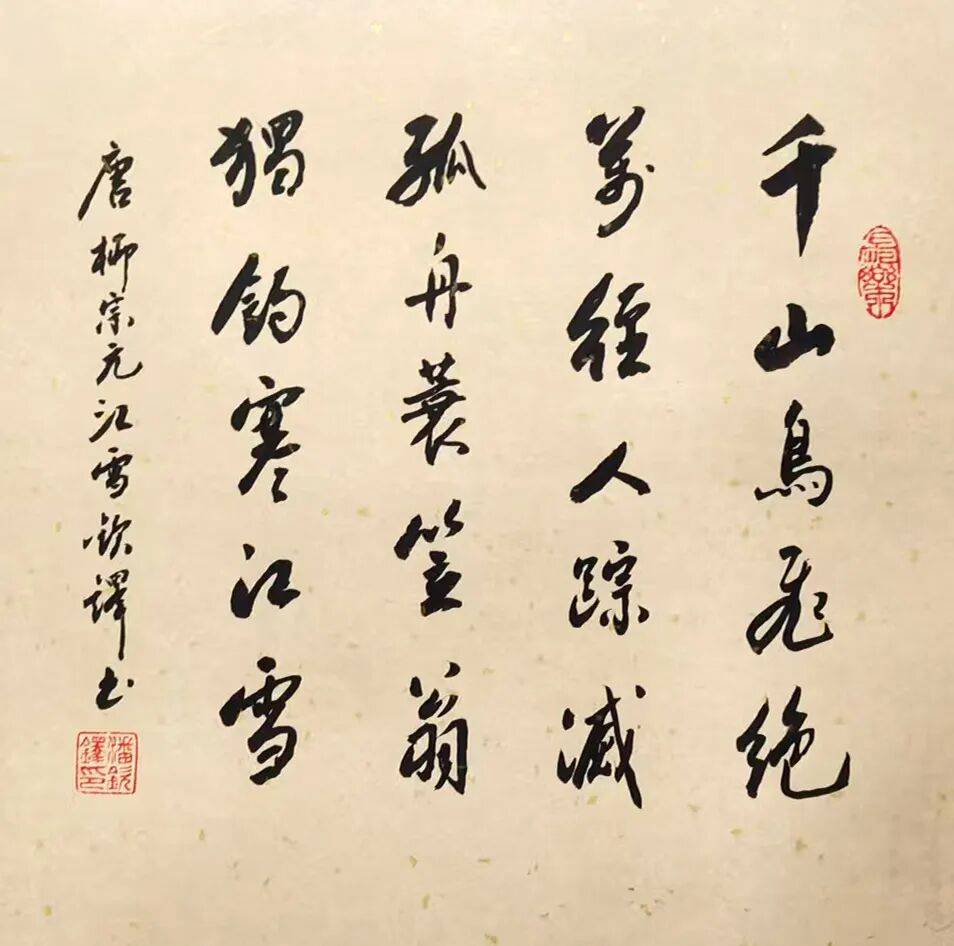 千山鳥飛絕
萬徑人踪滅
孤舟蓑笠翁
獨釣寒江雪
唐柳宗元江雪 欽鐸书
潘欽鐸印